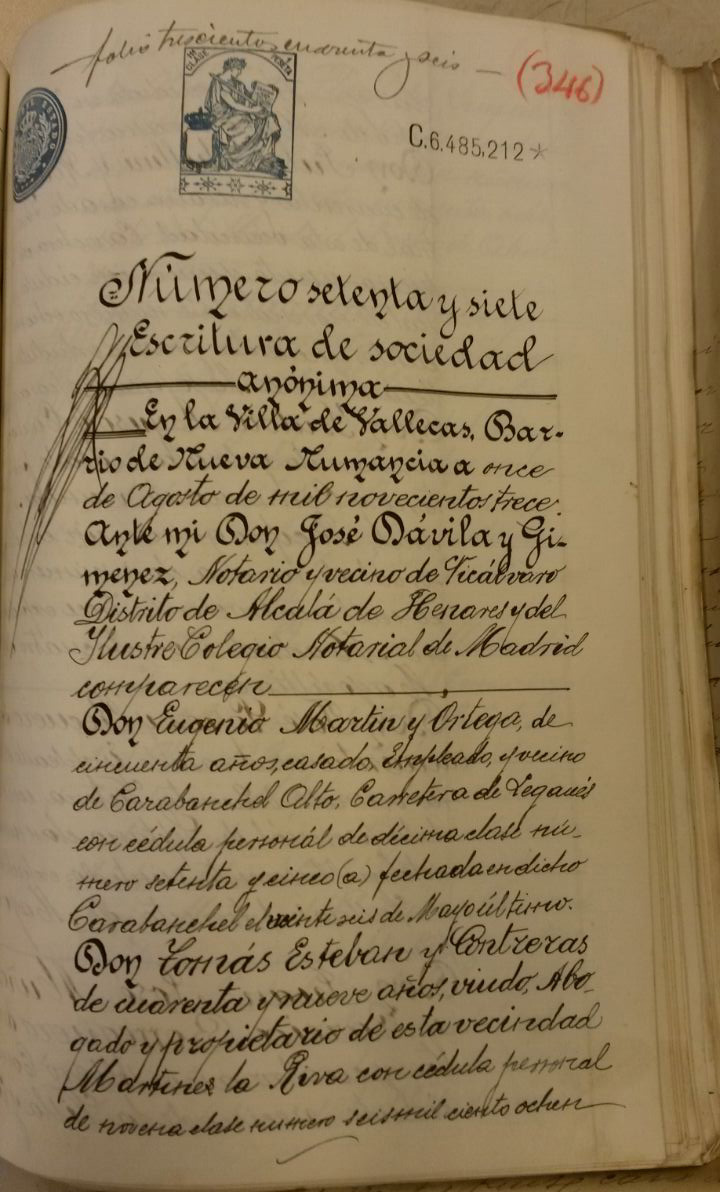 folio trescientos cuarenta y seis —
(346)
C.6.485,212*
Número setenta y siete
Escritura de sociedad
anónima
En la Villa de Vallecas, Bar-
rio de Nueva Numancia a once
de Agosto de mil novecientos trece.
Ante mi Don José Dávila y Gi-
menez, Notario y vecino de Vicálvaro
Distrito de Alcalá de Henares y del
Ilustre Colegio Notarial de Madrid
comparecen
Don Eugenio Martin y Ortega, de
cincuenta años, casado, Empleado, y vecino
de Carabanchel Alto, Carretera de Leganés
con cédula personál de décima clase nú-
mero setenta y cinco (a) fechada en dicho
Carabanchel el veinte seis de Mayo último.
Don Tomás Esteban y Contreras
de cuarenta y nueve años, viudo, Abo-
gado y propietario de esta vecindad
Martinez la Riva con cédula personal
de novena clase numero seis mil ciento ochen